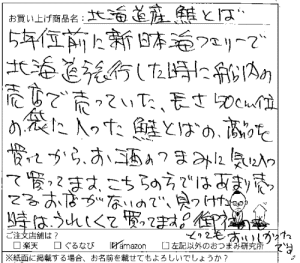 お買い上げ商品名：北海道産鮭とば
5年位前に新日本海フェリーで
北海道旅行した時に船内の
売店で売っていた、長さ50cm位
の袋に入った鮭とばの、商品を
買ってから、お酒のつまみに気に入っ
て買ってます。こちらの方ではあまり売っ
てるおみせがないので、見つけた
時は、うれしくて買ってます!
とってもおいしかった
です。
ご注文店舗は？
□楽天 □ぐるなび ☑amazon □左記以外のおつまみ研究所
※紙面に掲載する場合、お名前を載せてもよろしいでしょうか？